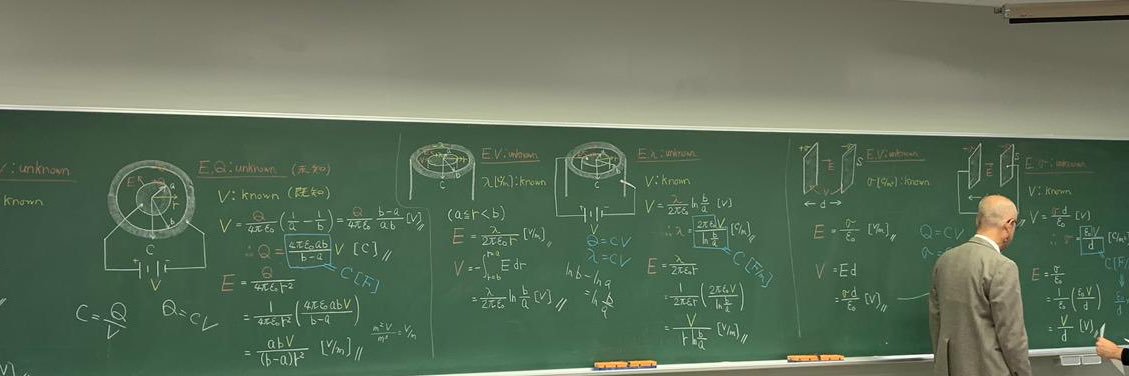 V: unknown
known
E.Q: unknown (未知)
V: known (既知)
V = Q/4πε₀ (1/a - 1/b) = Q/4πε₀ b-a/ab [V] //
∴ Q = 4πε₀ab/b-a V [C] //
C [F]
E = Q/4πε₀r²
= 1/4πε₀r² (4πε₀abV/b-a)
= abV/(b-a)r² [V/m] //
m²V/m³ = V/m
E
a
r
b
C
V
C = Q/V
Q = CV
E.V: unknown
λ [C/m]: known
(a≦r<b)
E = λ/2πε₀r [V/m] //
V = -∫r=b r=a E dr
= λ/2πε₀ ln b/a [V] //
C
E.λ: unknown
V: known
V = λ/2πε₀ ln b/a [V]
∴ λ = 2πε₀V/ln b/a [C/m] //
C [F/m]
E = λ/2πε₀r
= 1/2πε₀r (2πε₀V/ln b/a)
= V/r ln b/a [V/m] //
C
V
Q = CV
λ = CV
ln b - ln a
= ln b/a
+σ
-σ
E
S
V
← d →
E.V: unknown
σ [C/m²]: known
E = σ/ε₀ [V/m] //
V = Ed
= σd/ε₀ [V] //
Q = CV
E
S
E.σ: unknown
V: known
V = σd/ε₀ [V]
∴ σ = ε₀V/d [C/m²]
C [F/
E = σ/ε₀
= 1/ε₀ (ε₀V/d)
= V/d [V/